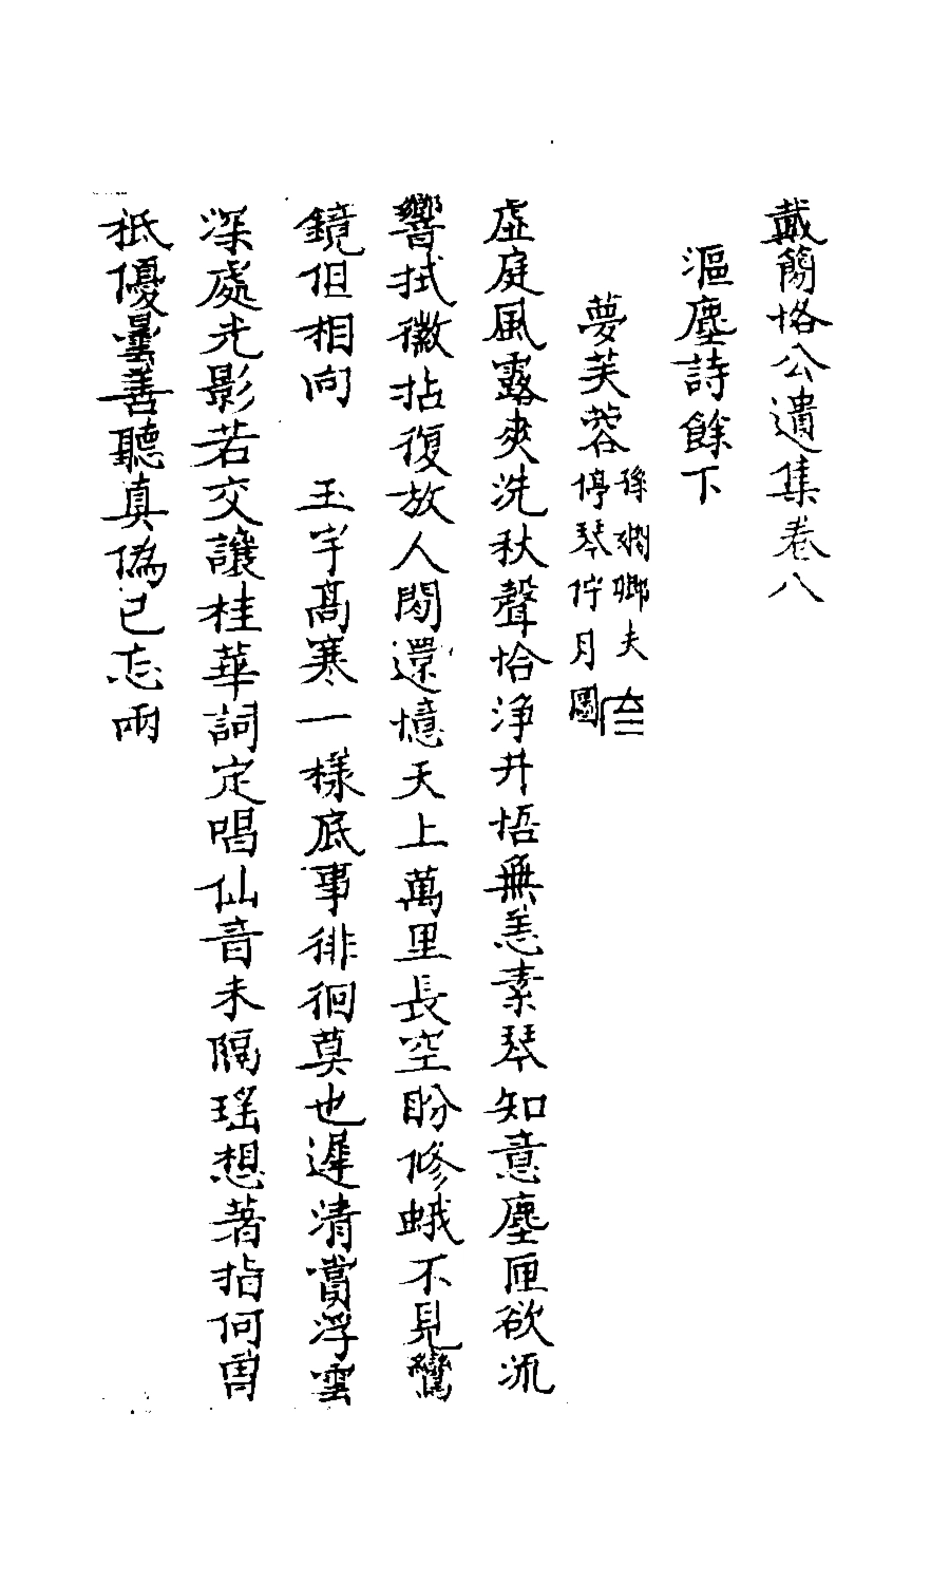 戴簡恪公遺集卷八
漚塵詩餘下
夢芙蓉孫嫺卿夫
停琴佇月圖
虛庭風露爽洗秋聲恰淨井梧無恙素琴知意塵匣欲流
響拭徽拈復放人閒還憶天上萬里長空盼修蛾不見鸞
鏡但相向 玉宇高寒一樣底事徘徊莫也遲清賞浮雲
深處光影若交讓桂華詞定唱仙音未隔瑤想著指何曾
祇優曇善聽真偽已忘兩